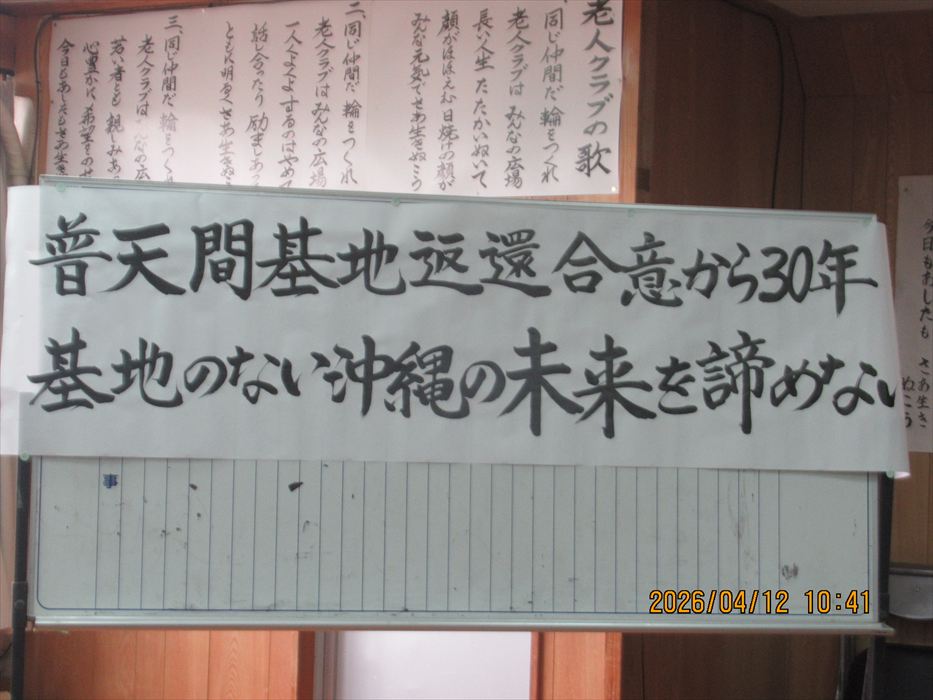 老人クラブの歌
一、同じ仲間だ 輪をつくれ
老人クラブは みんなの広場
長い人生 たたかいぬいて
顔がほほえむ 日焼けの顔が
みんな元気で さあ生きぬこう
二、同じ仲間だ 輪をつくれ
老人クラブは みんなの広場
一人くよくよするのはやめて
話し合ったり 励ましあっ
ともに明るく さあ生きぬこ
三、同じ仲間だ 輪をつくれ
老人クラブは みんなの広
若い者とも 親しみあ
心豊かに 希望をのせ
今日もあしたも さあ生き
普天間基地返還合意から30年
基地のない沖縄の未来を諦めない
今日もあしたも さあ生き
ぬこう
2026/04/12 10:41